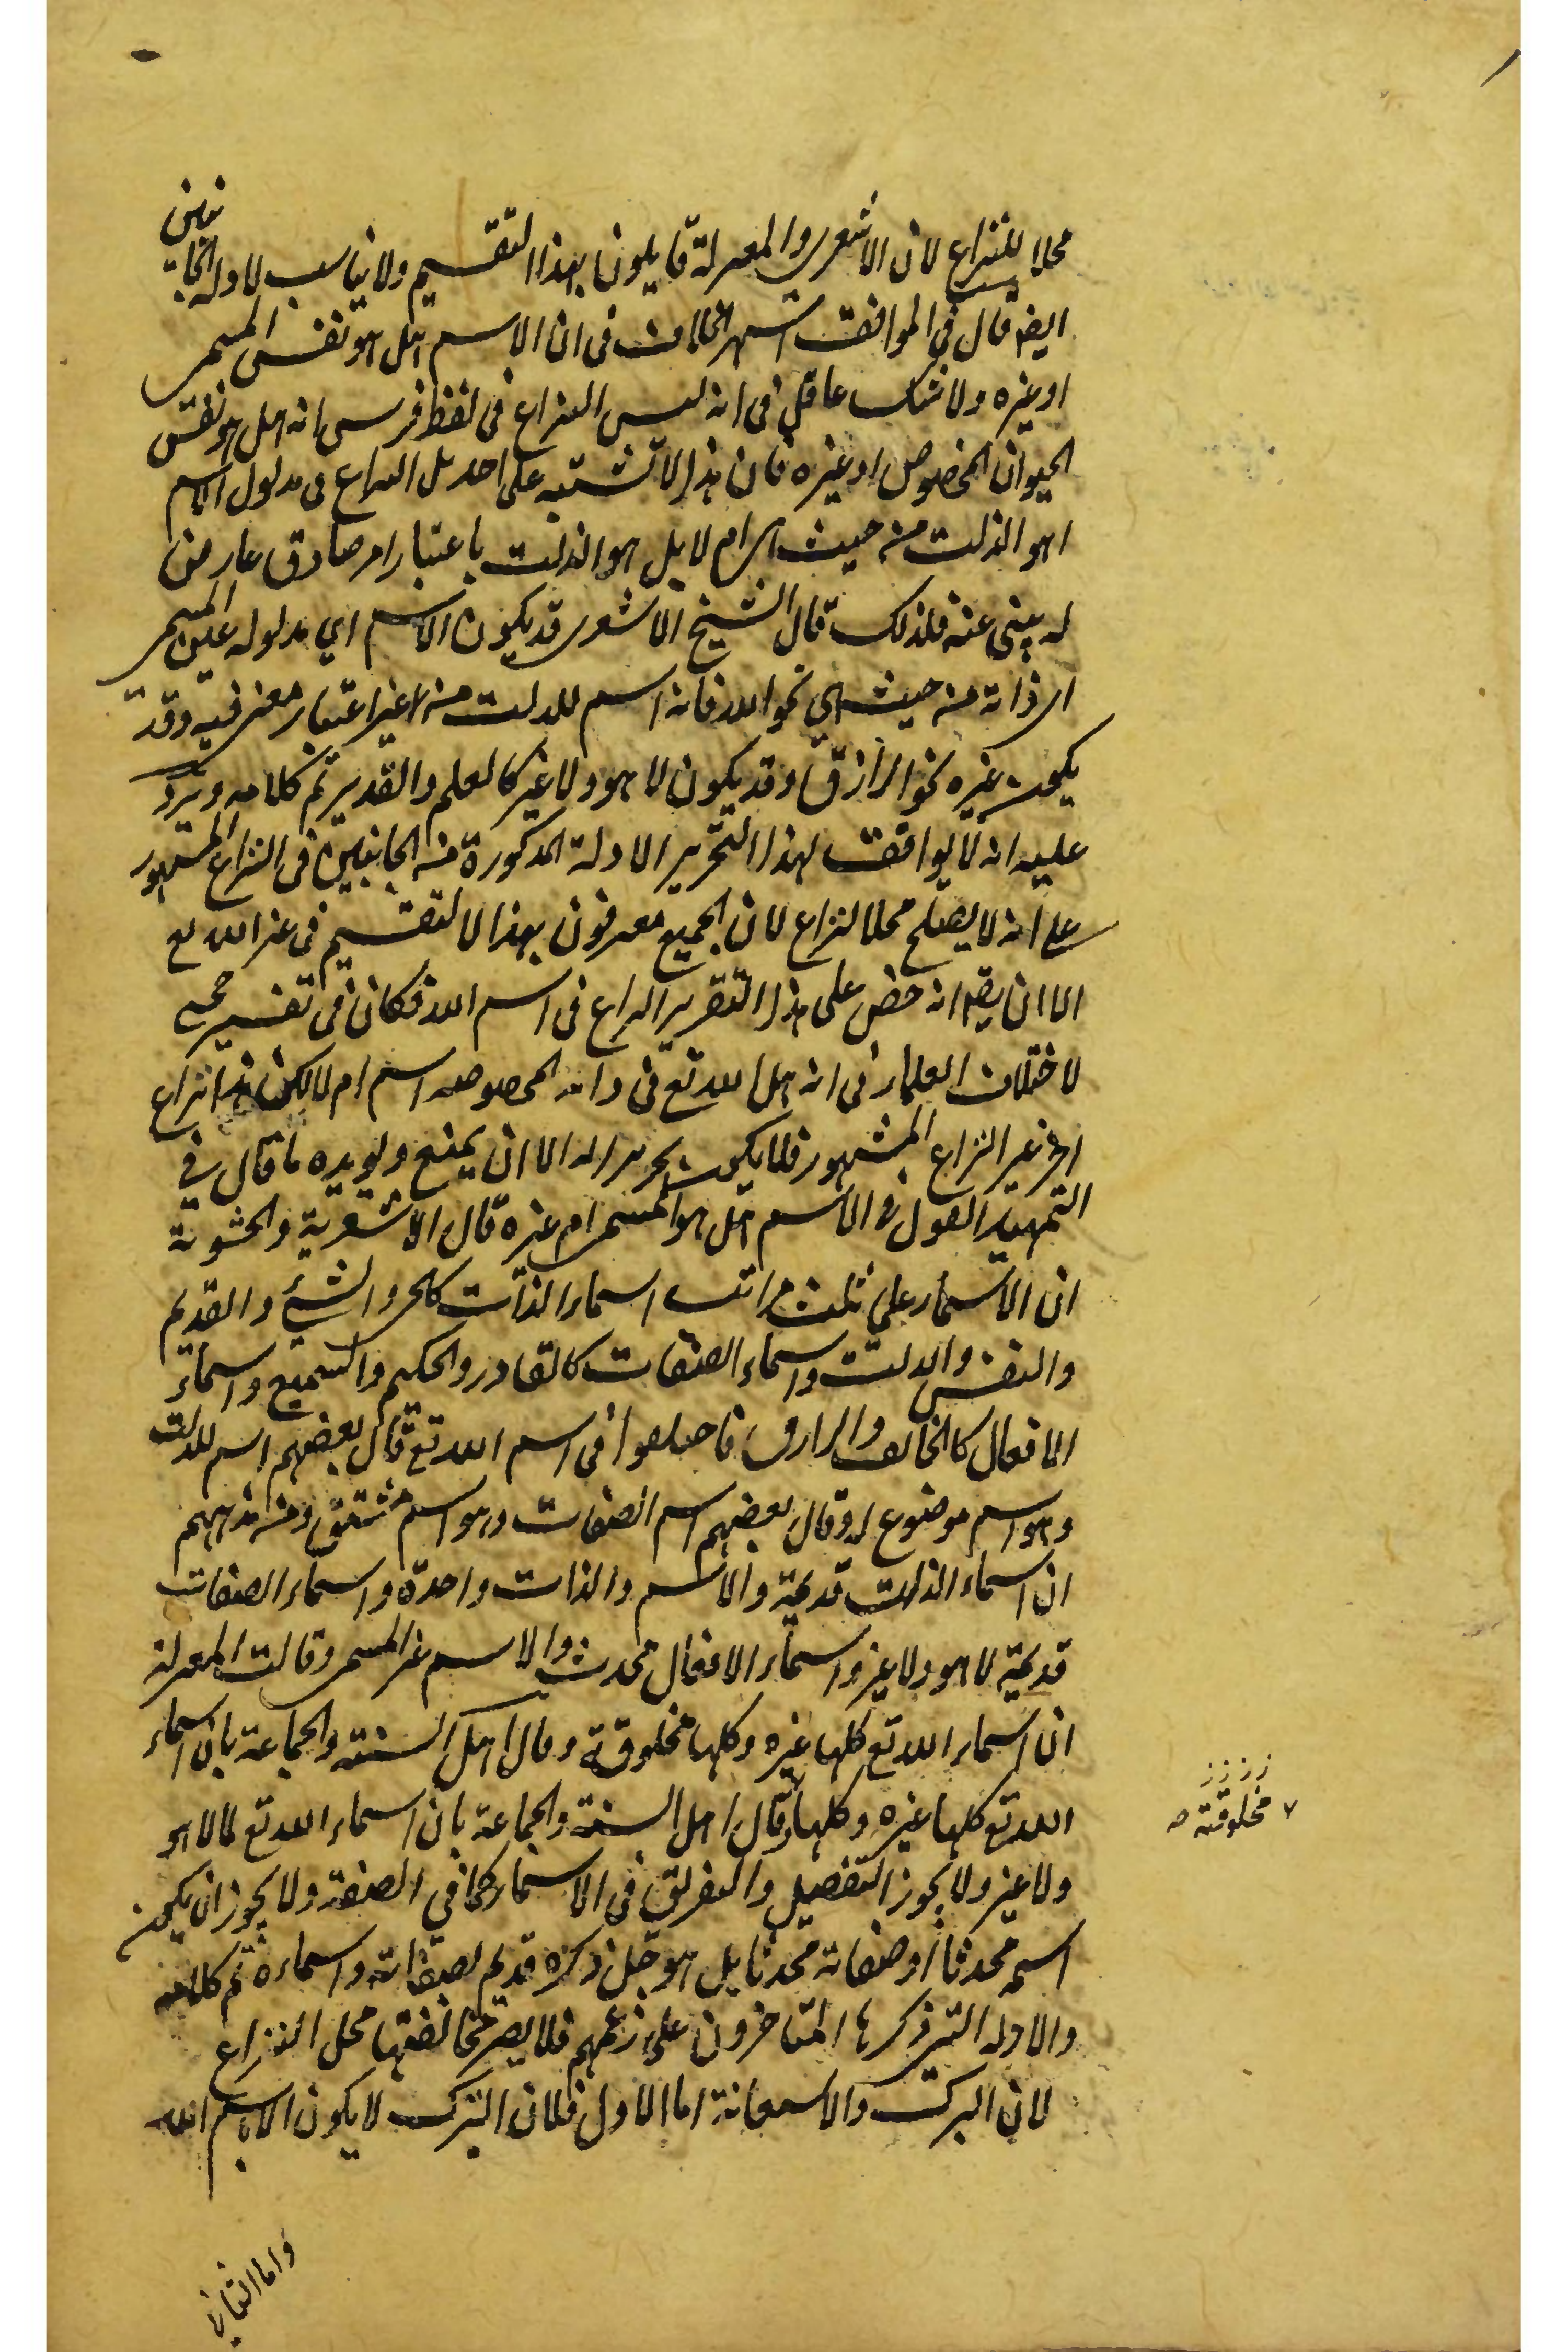 محلا للنزاع لان الاشعرى والمعتزلة قايلون بهذا التقسيم ولا يناسب الادلة الجانبين
ايضا قال فى المواقف اشتهر الخلاف فى ان الاسم اهل هو نفس المسمى
او غيره ولا شك عاقل فى انه ليس النزاع فى لفظ فرس انه اهل هو نفس
الحيوان المخصوص او غيره فان هذا لا تشتبه على احد بل النزاع فى مدلول الاسم
اهو الذات من حيث هى ام لا بل هو الذات باعتبار امر صادق عارض
له ينبى عنه فلذلك قال الشيخ الاشعرى قد يكون الاسم اي مدلوله عين المسمى
اى ذاته من حيث هي نحو الله فانه اسم للذات من غير اعتبار معنى فيه وقد
يكون غيره نحو الرازق وقد يكون لا هو ولا غير كالعلم والقدير تم كلامه ويرد
عليه انه لا يوافق لهذا التحرير الادلة المذكورة من الجانبين فى النزاع المشهور
على انه لا يصلح محلا لنزاع لان الجميع معرفون بهذا لا لتقسيم فى غير الله تع
الا ان يقه انه خص على هذا التقرير النزاع فى اسم الله فكان فى تفسير
لاختلاف العلماء فى انه اهل الله تع فى ذاته المخصوصه اسم ام لا لكن هذا نزاع
اخر غير النزاع المشهور فلا يكون تحريرا له الا ان يمنع ويويده ما قال في
التمهيد القول فى الاسم اهل هو المسمى ام غيره قال الاشعرية والحشوية
ان الاسماء على ثلث مراتب اسماء الذات كالحى والشئ والقديم
والنفس والذات واسماء الصفات كالقادر والحكيم والسميع واسماء
الافعال كالخالق والرازق فاختلفوا فى اسم الله تع قال بعضهم اسم للذات
وهو اسم موضوع له وقال بعضهم اسم الصفات وهو اسم مشتق ومن مذهبهم
ان اسماء الذات قديمة والاسم والذات واحدة واسماء الصفات
قديمية لا هو ولا غير واسماء الافعال محدث والاسم غير المسمى وقالت المعتزلة
ان اسماء الله تع كلها غيره وكلها مخلوقة وقال اهل السنته والجماعة بان اسماء
الله تع كلها غيره وكلها وقال اهل السنته والجماعة بان اسماء الله تع لا لا هو
ولا غير ولا يجوز التفصيل والتفريق فى الاسماء كما في الصفة ولا يجوز ان يكون
اسمه محدثا او صفاته محدثا بل هو جل ذكره قديم بصفاته واسماءه تم كلامه
والادله التى ذكرها المتاخرون على زعمهم فلا يضر مخالفتها محل النزاع
لان البرك والاستعانة اما الاول فلان التبرك لا يكون الا باسم الله
٧ مخلوقته صه
واما الثانى